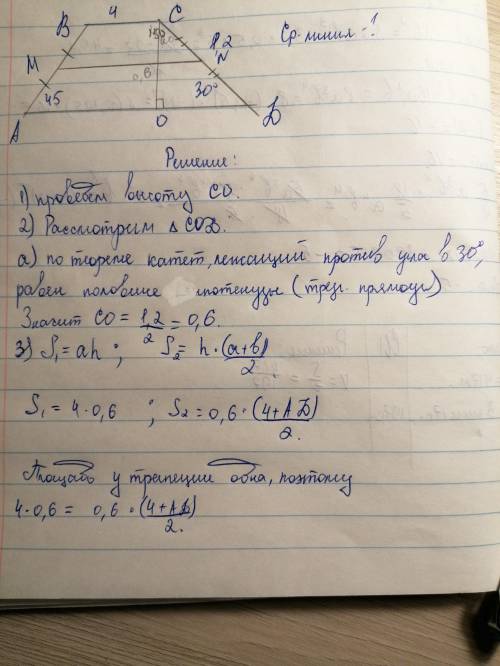 B 4 C
Ср. линия - ?
M 1,2 N
0,6
45 30°
A O D
Решение:
1) проведём высоту CO.
2) Рассмотрим △COD.
а) по теореме катет, лежащий против угла в 30°,
равен половине гипотенузы (треуг. прямоуг)
Значит CO = 1,2/2 = 0,6.
3) S₁ = ah ; S₂ = h · (a+b)/2
S₁ = 4 · 0,6 ; S₂ = 0,6 · (4+AD)/2.
Площадь у трапеции одна, поэтому
4 · 0,6 = 0,6 · (4+AD)/2.